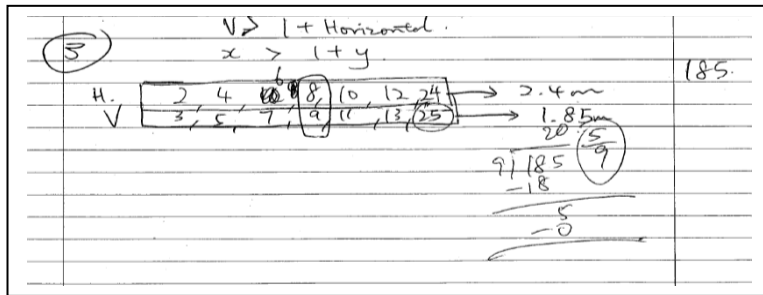 V > 1 + Horizontal.
3
x > 1 + y.
185.
6
H. 2, 4, 8, 10, 12, 24 → 2.4m
V 3, 5, 7, 9, 11, 13, 25 → 1.85m
20 5/9
9)185
-18
5
-0